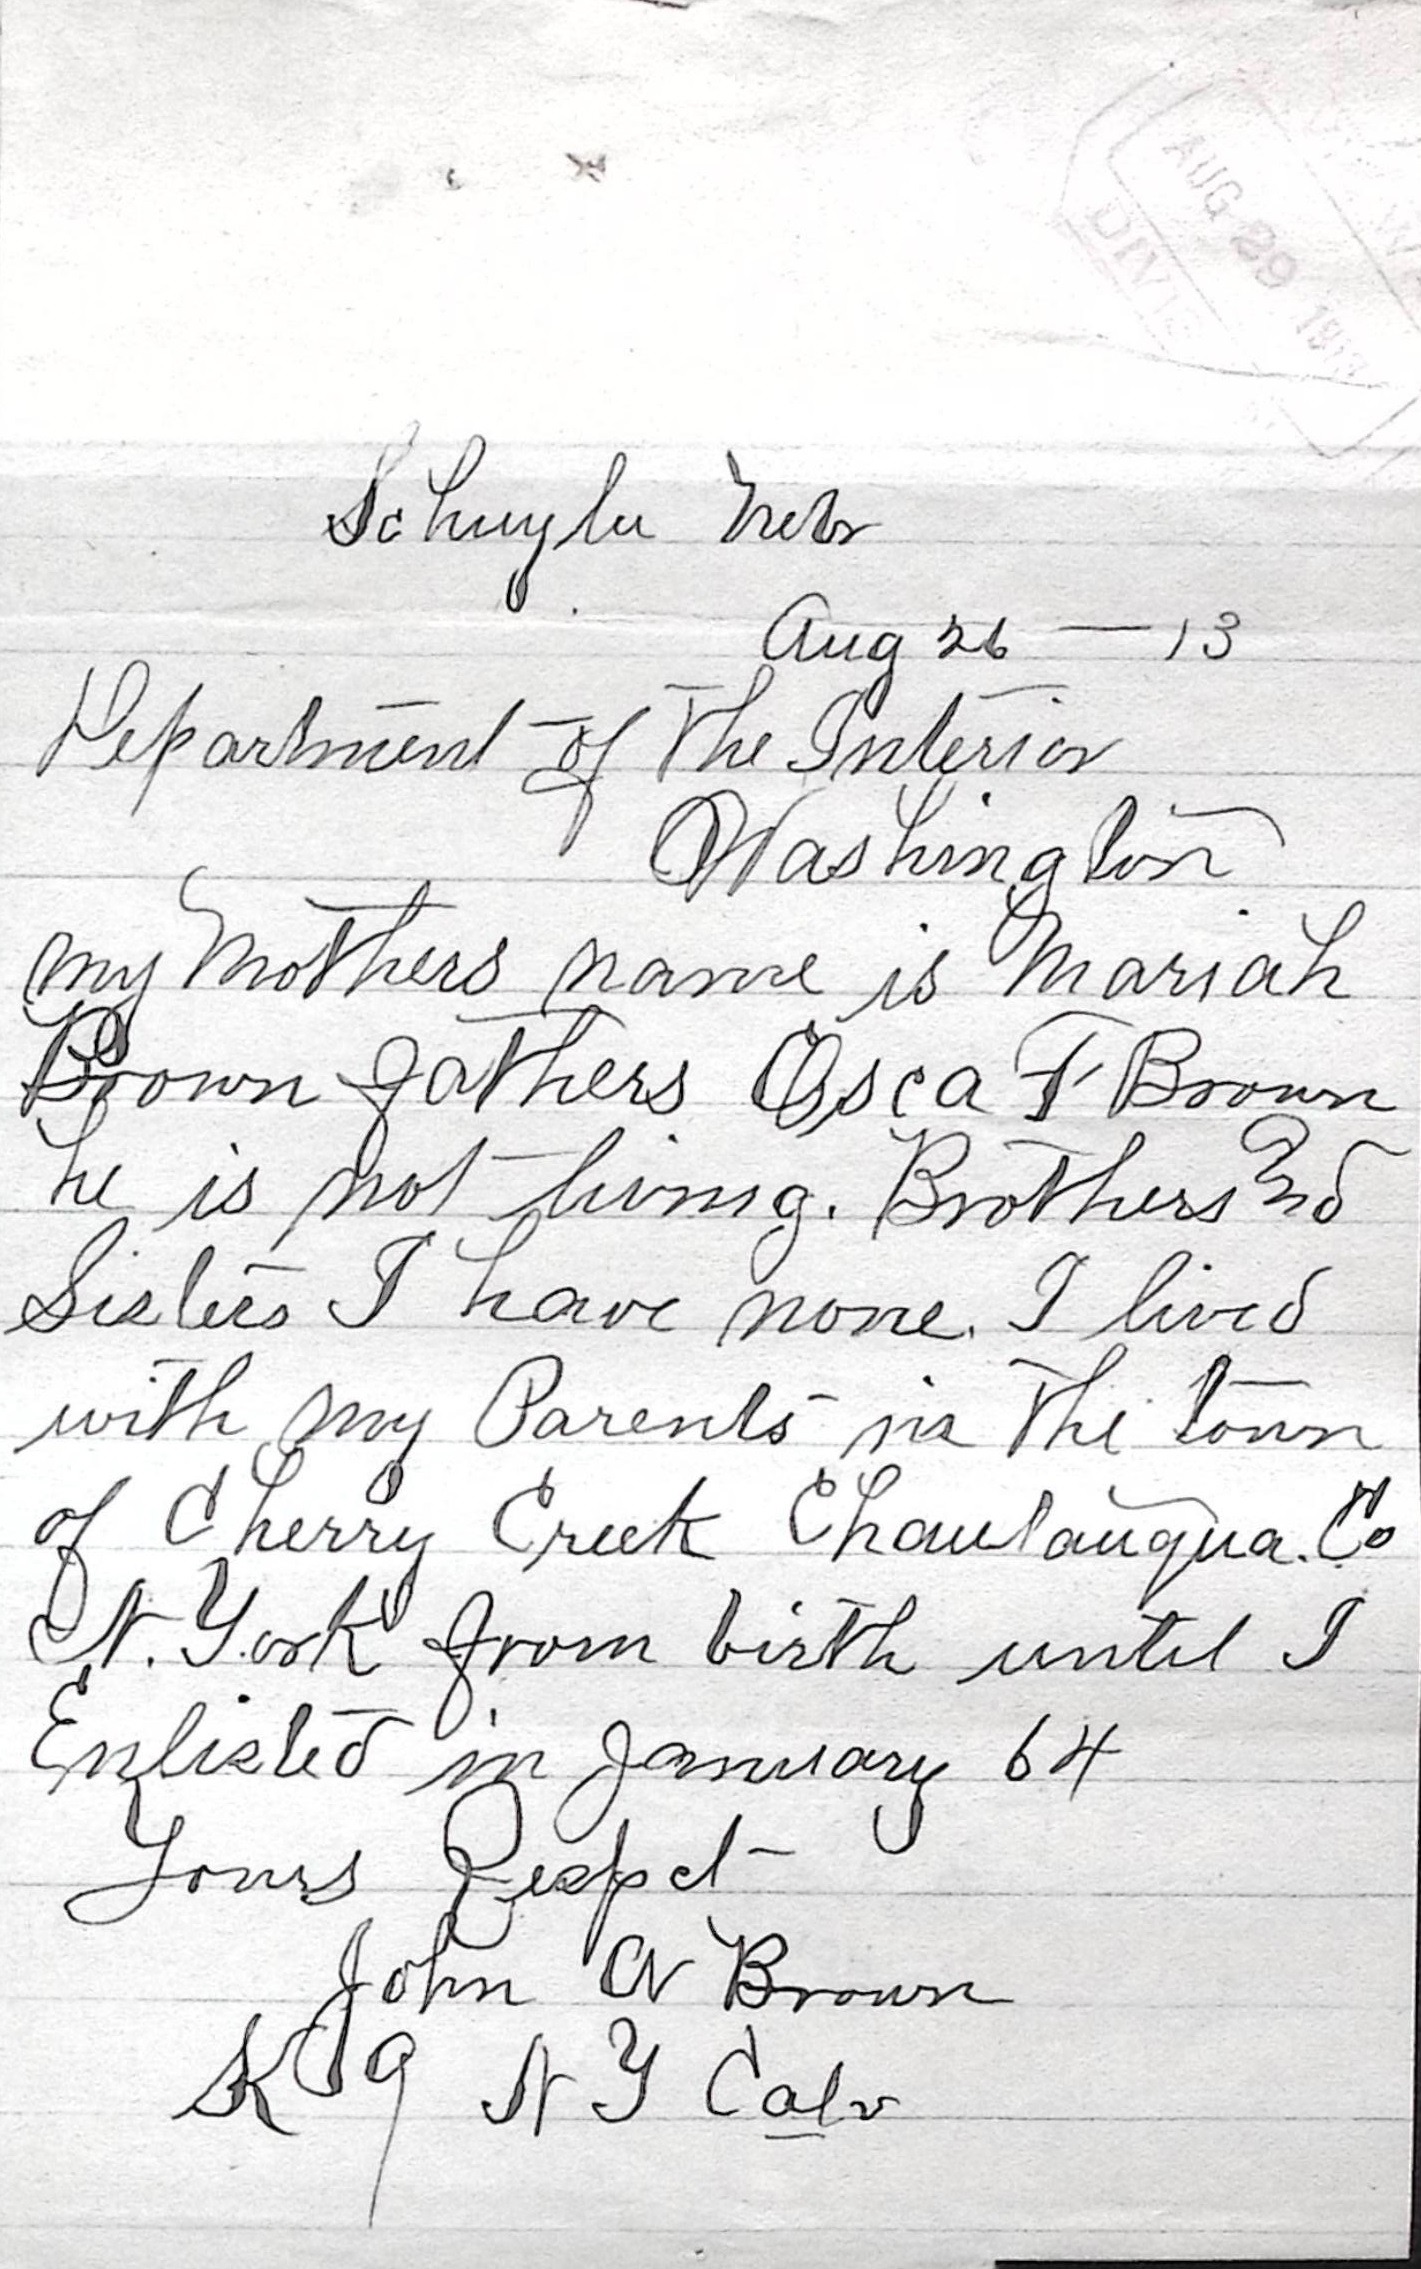 AUG 29 1913
DIVIS
Schuyler Nebr
Aug 26 — 13
Department of the Interior
Washington
my Mothers name is Mariah
Brown fathers Osca F Brown
he is not living. Brothers nd
Sisters I have none. I lived
with my Parents in the town
of Cherry Creek Chautauqua. Co
N. York from birth until I
Enlisted in January 64
Yours Respct
John A Brown
K 9 N Y Calv